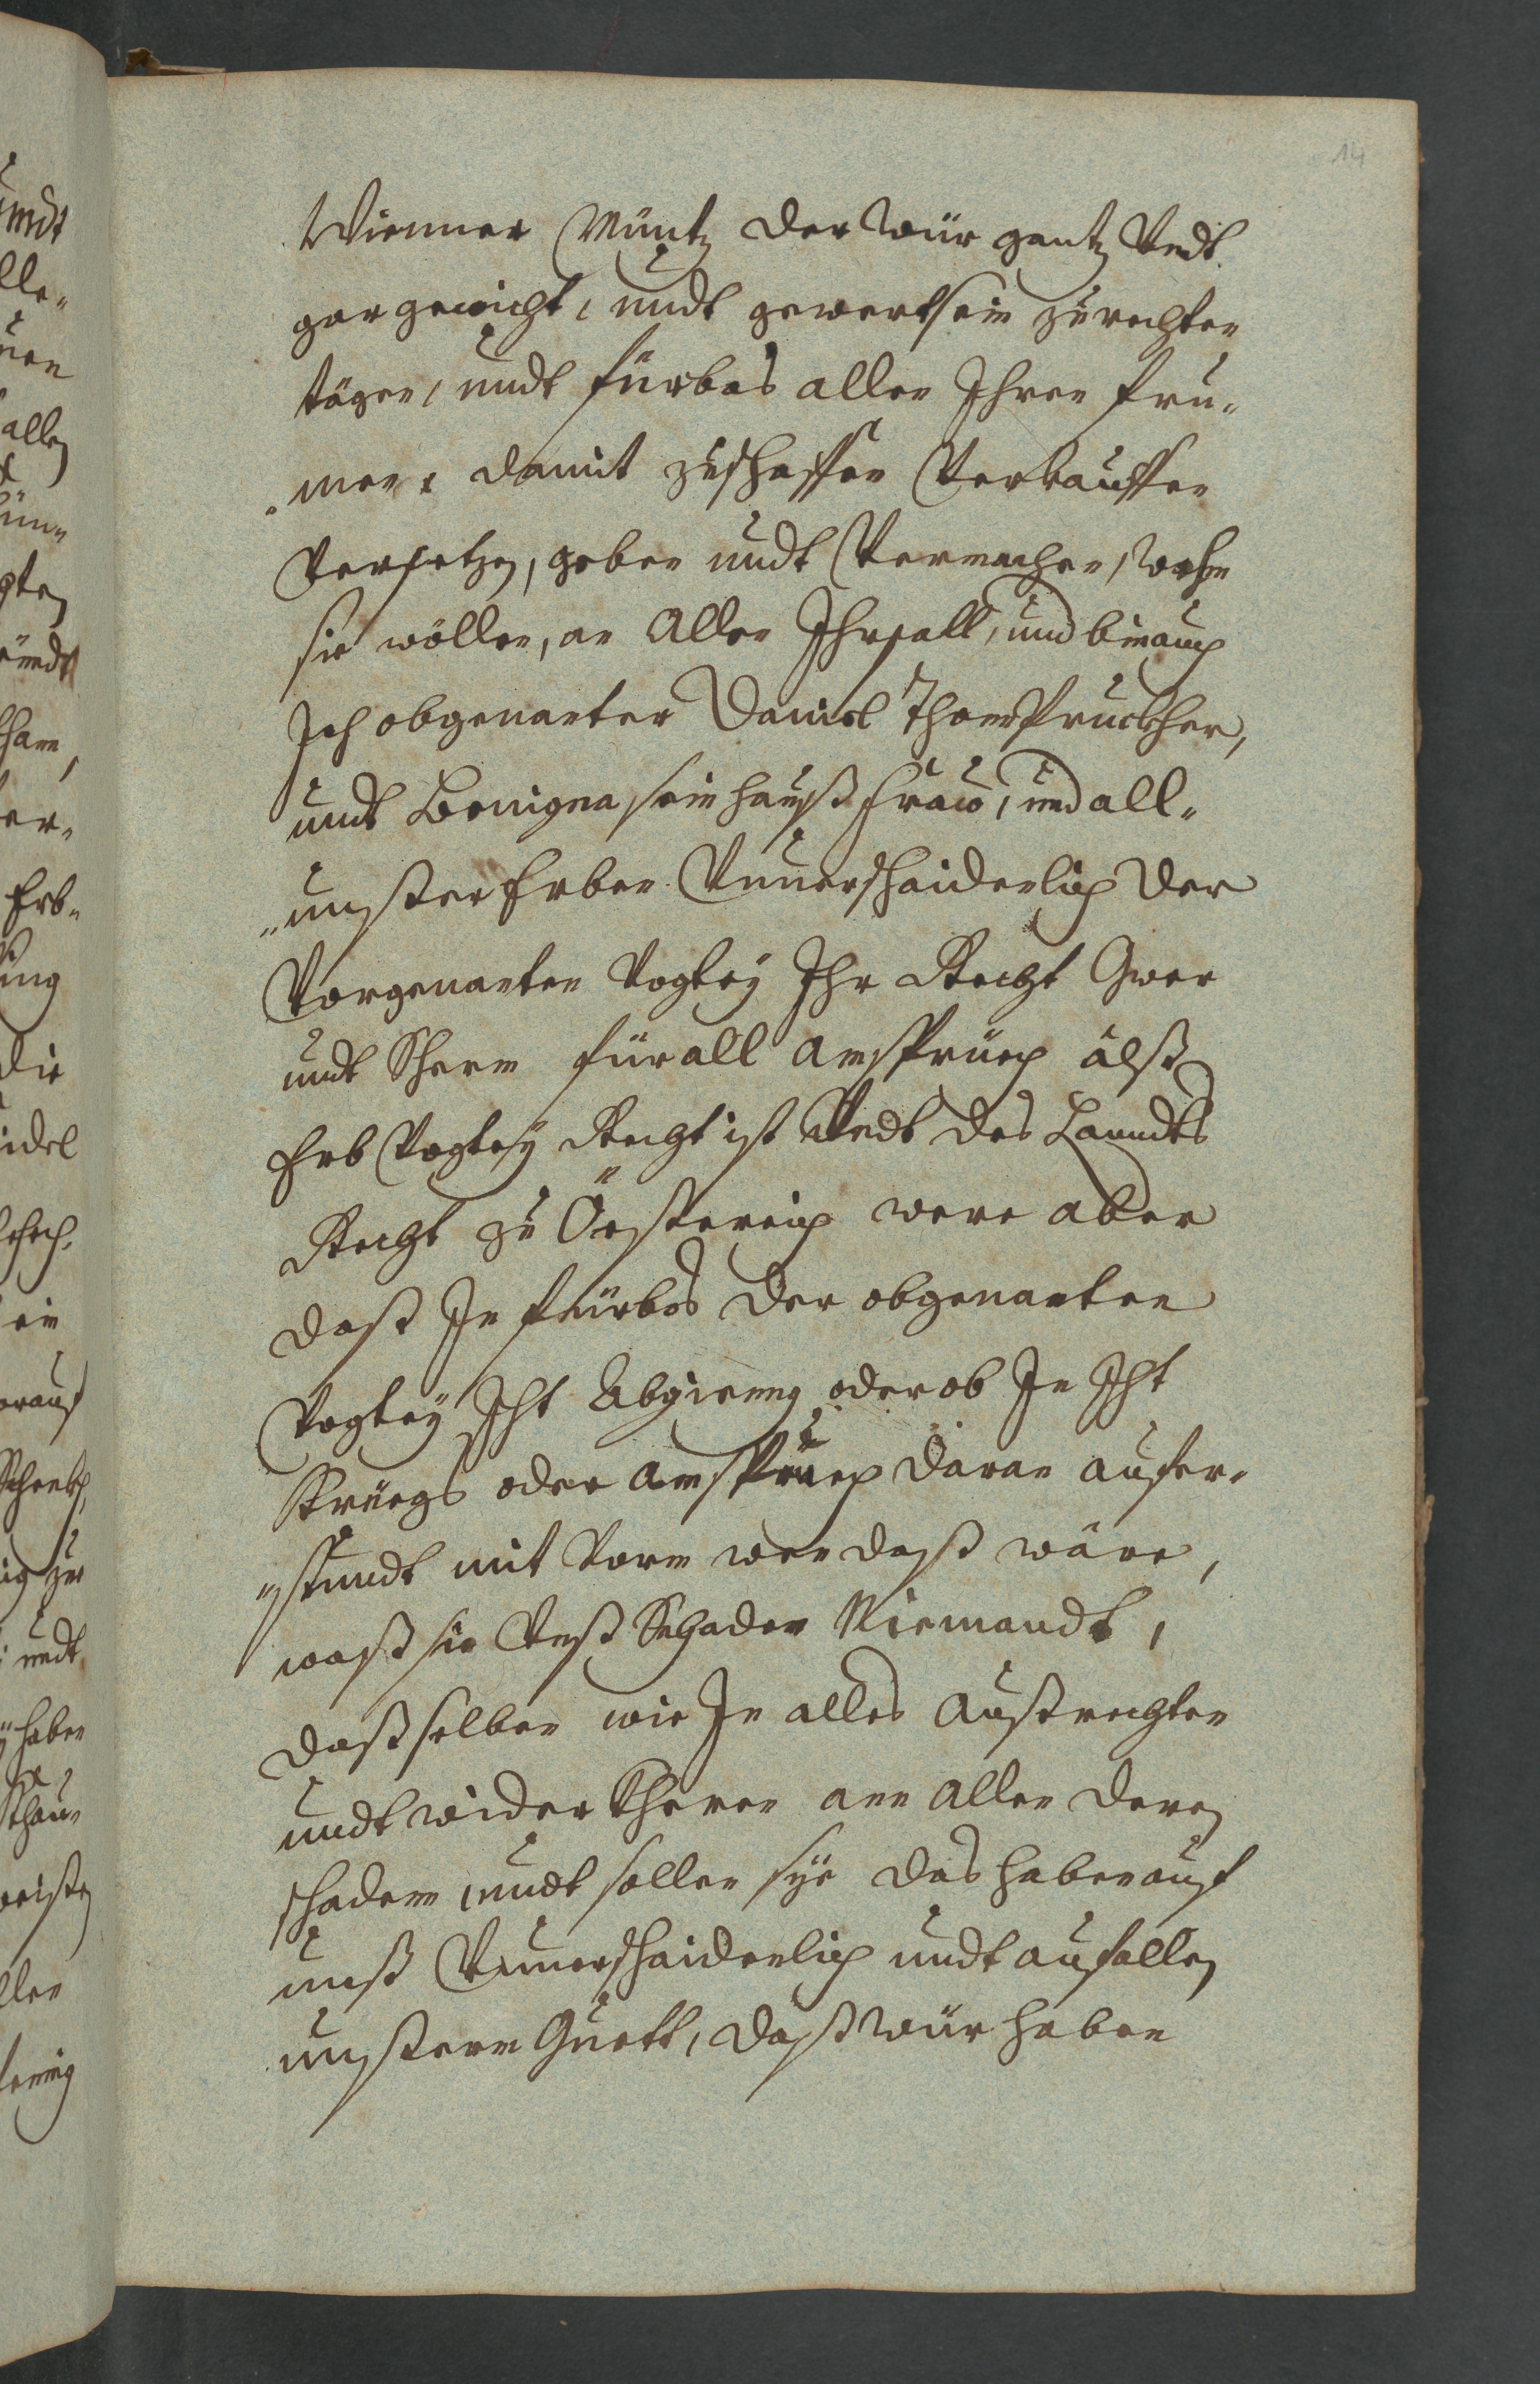 14
Wienner Müntz der wür gantz Undt
gar gewicht, undt gewert sein zu rechten
tägen, undt fürbas allen Ihren fru„
„men, damit zuschaffen Verkauffen
Versetzen, geben undt Vermachen, wehm
sie wöllen, an Allen Ihrsall, und bin auch
Ich obgenanter Daniel Thomspruckher,
undt Benigna sein haußfraw, und all„
„unßer Erben Unuerschaidenlich der
Vorgenanten Vogtey Ihr Recht Gwer
undt Scherm für all Ansprüch alß
Erb Vogtey Recht ist Undt des Lanndts
Recht zu Össterreich were aber
daß In fürbas der obgenanten
Vogtey Icht Abgieng oder ob In Icht
Kriegs oder Anspruch daran aufer„
„stundt mit Varn wan daß wäre,
waß sie deß Schaden Niemandt,
daßselben wir In alles Außrichten
undt widerkheren ann allen deren
schaden, undt sollen sye das haben auf
unß Unuerschaidenlich undt auf allen
unßerm Guett, daß wür haben